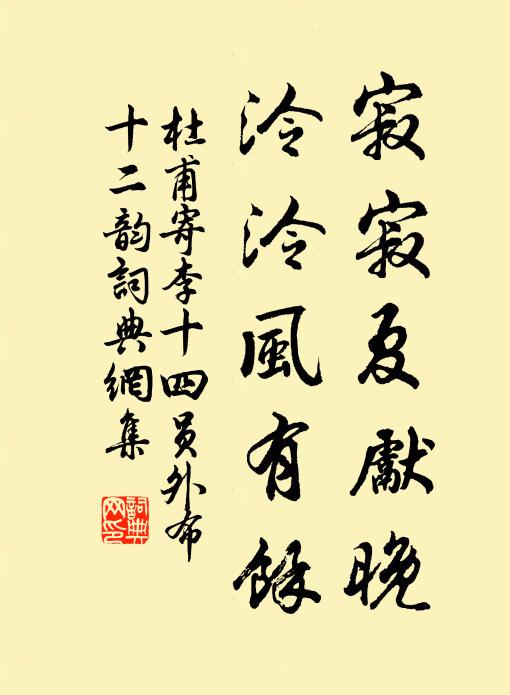 寂寂夏獻晚
泠泠風有餘
杜甫寄李十四員外布
十二韵詞典網集
詞典
网印